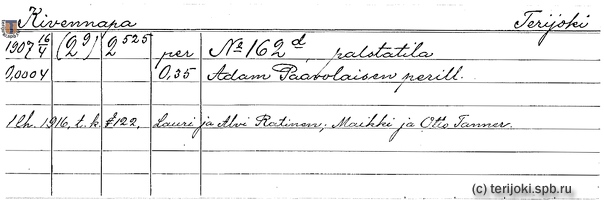 Kivennapa Terijoki
1907 16/4 (2⁹) 2⁵²⁵ per № 162ᵈ, palstatila
0,0004 0,35 Adam Paavolaisen perill.
1 lh. 1916, t.k. £122, Lauri ja Alvi Ratinen; Maikki ja Otto Tanner.
(c) terijoki.spb.ru